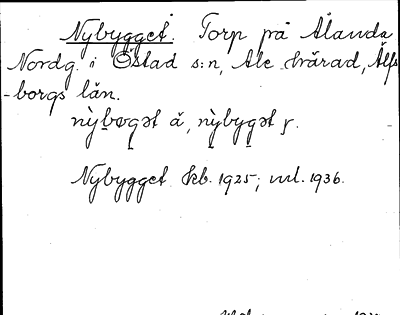 Nybygget. Torp på Ålanda
Nordg. i Östad s:n, Ale härad, Älfs
-borgs län.
nỳbǥgət ǎ, nỳbygət y.
Nybygget kb. 1925; vul. 1936.